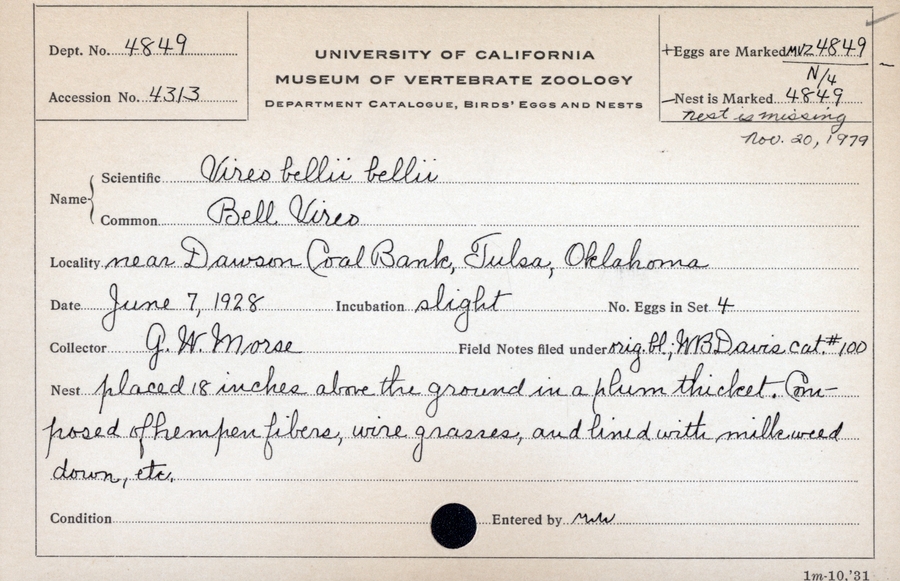 Dept. No. 4849
Accession No. 4313
UNIVERSITY OF CALIFORNIA
MUSEUM OF VERTEBRATE ZOOLOGY
DEPARTMENT CATALOGUE, BIRDS' EGGS AND NESTS
+Eggs are Marked MVZ 4849
N/4
—Nest is Marked 4849
nest is missing
Nov. 20, 1979
Name
Scientific Vireo bellii bellii
Common Bell Vireo
Locality near Dawson Coal Bank, Tulsa, Oklahoma
Date June 7, 1928 Incubation slight No. Eggs in Set 4
Collector G. W. Morse Field Notes filed under orig. bl; WB Davis cat. #100
Nest placed 18 inches above the ground in a plum thicket. Com-
posed of hempen fibers, wire grasses, and lined with milkweed
down, etc.
Condition Entered by
1m-10,'31